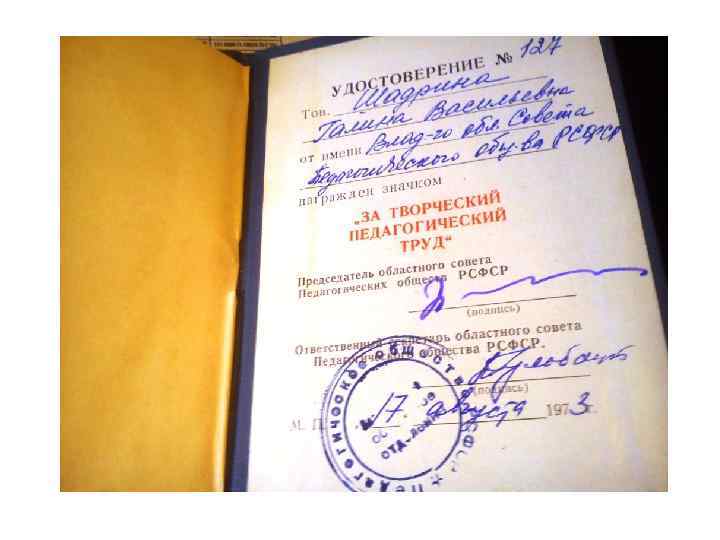 УДОСТОВЕРЕНИЕ № 127
Тов. Шадрина
Галина Васильевна
от имени Влад-го обл. Совета
Педагогического общ-ва РСФСР
награжден значком
„ЗА ТВОРЧЕСКИЙ
ПЕДАГОГИЧЕСКИЙ
ТРУД“
Председатель областного совета
Педагогических обществ РСФСР
(подпись)
Ответственный секретарь областного совета
Педагогического общества РСФСР.
(подпись)
М. П. 17 августа 1973 г.
Педагогическое общество РСФСР